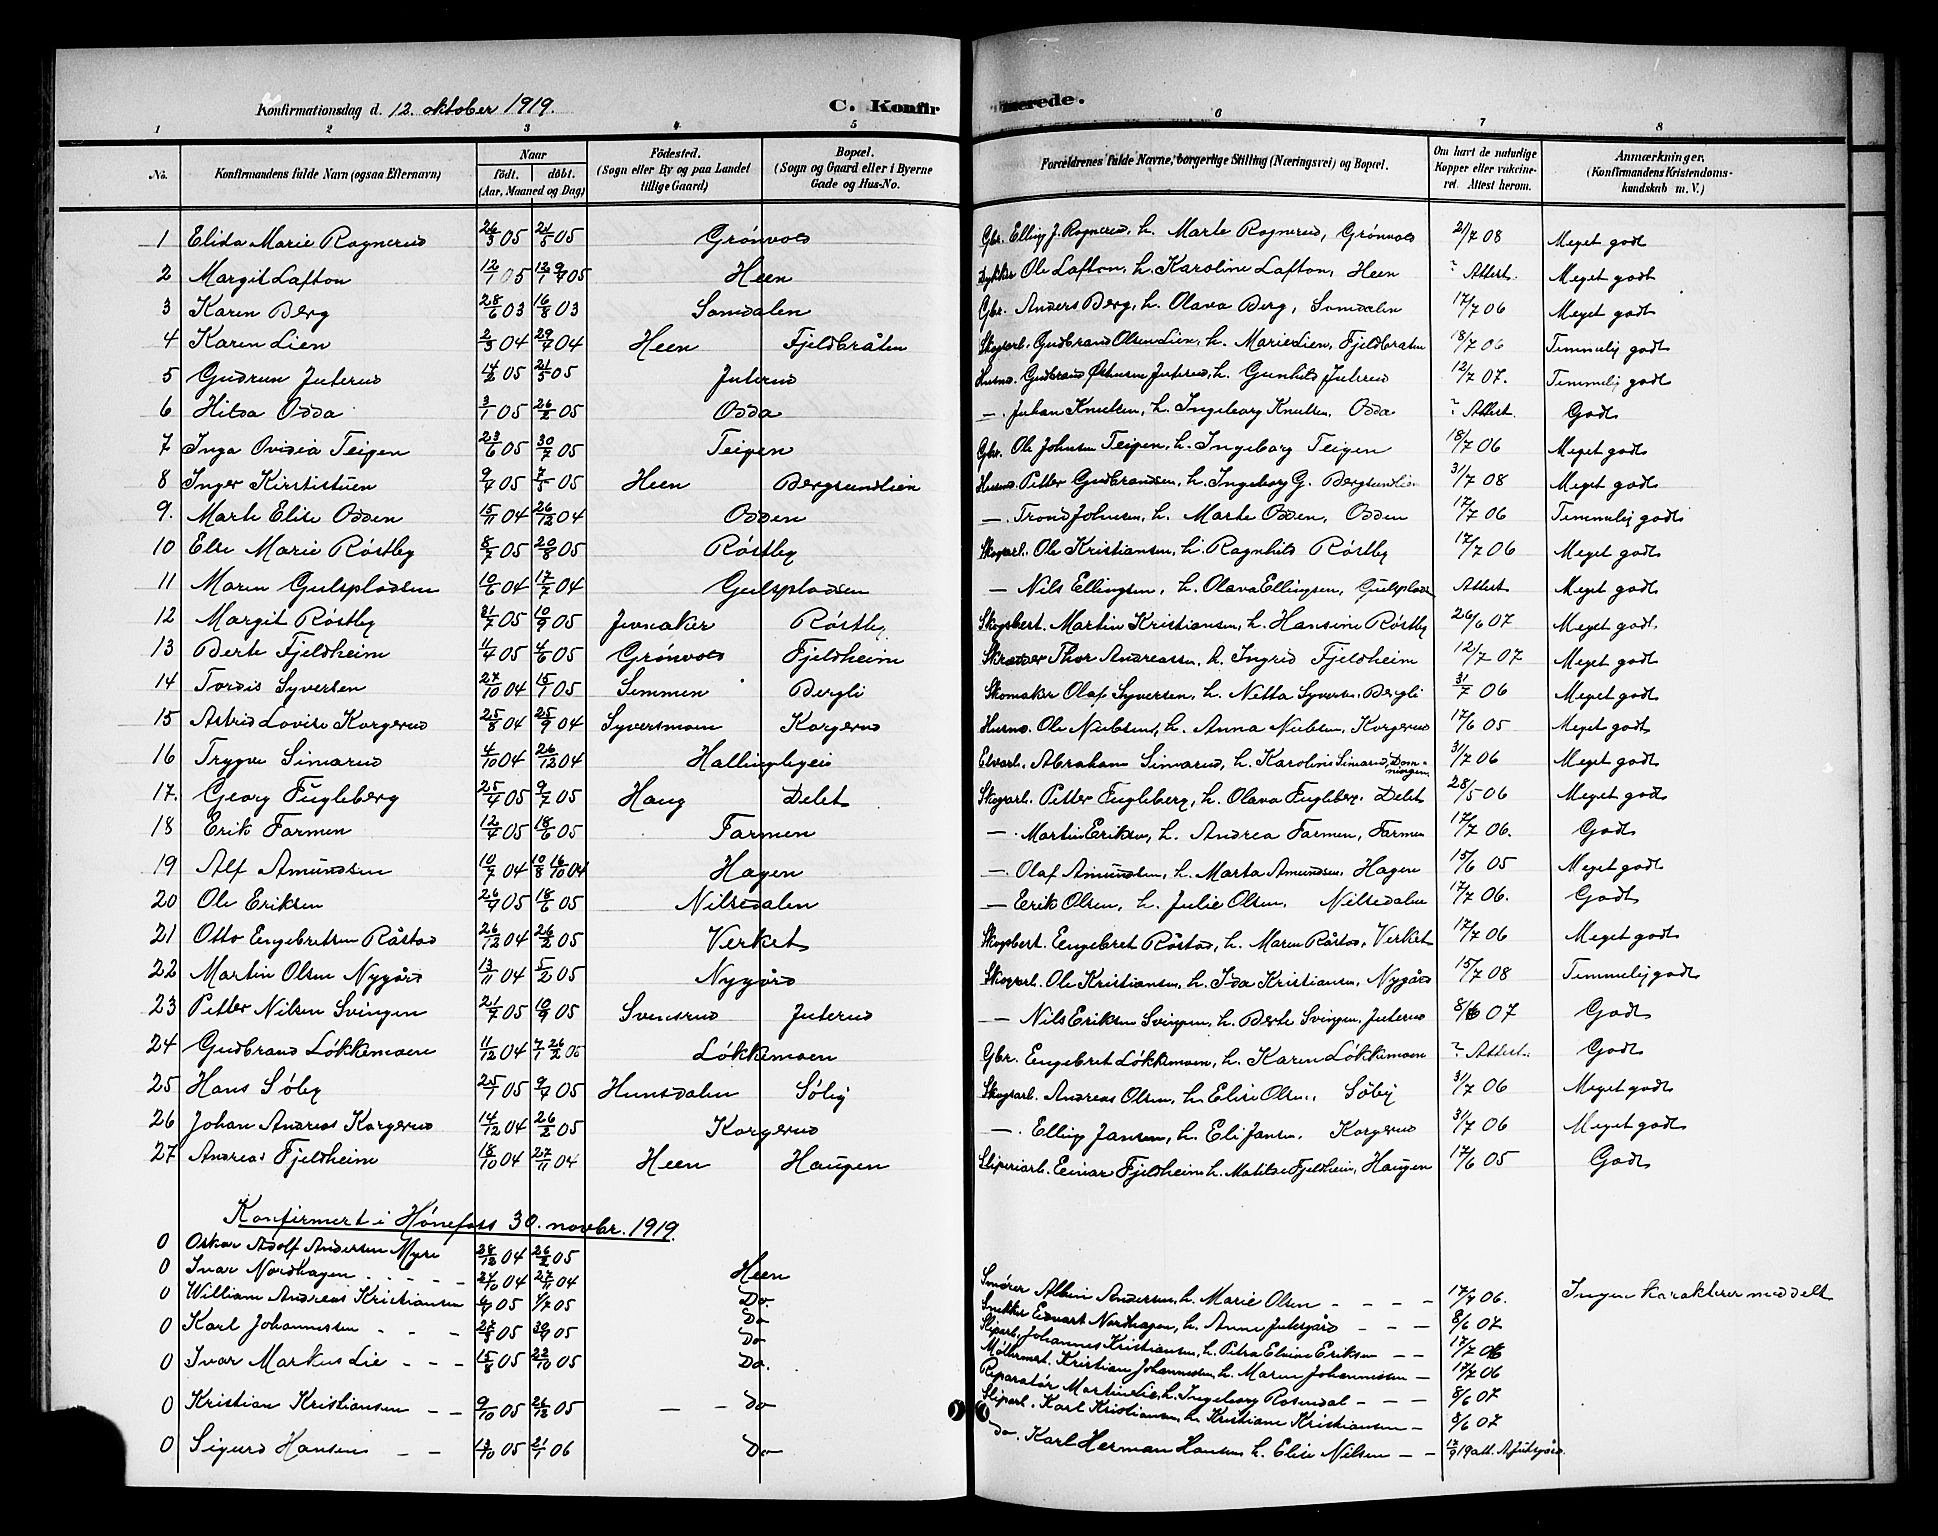 Konfirmationsdag d. 12. oktober 1919. C. Konfirmerede.
1 2 3 4 5 6 7 8
No. Konfirmandens fulde Navn (ogsaa Efternavn) Naar født. døbt. (Aar, Maaned og Dag) Fødested. (Sogn eller By og paa Landet tillige Gaard) Bopæl. (Sogn og Gaard eller i Byerne Gade og Hus-No. Forældrenes fulde Navne, borgerlige Stilling (Næringsvei) og Bopæl. Om havt de naturlige Kopper eller vakcineret. Attest herom. Anmærkninger. (Konfirmandens Kristendomskundskab m. V.)
1 Elida Marie Rognerud 26/3 05 21/5 05 Grønvold Gbr. Elling J. Rognerud, h. Marte Rognerud, Grønvold 21/7 08 Meget godt
2 Margit Lafton 12/1 05 12/1 9/7 05 Heen Ole Lafton, h. Karoline Lafton, Heen ? Attest. Meget godt
3 Karen Berg 28/6 03 16/8 03 Somdalen Gbr. Anders Berg, h. Olava Berg, Somdalen 17/7 06 Meget godt
4 Karen Lien 2/3 04 29/7 04 Heen Fjeldbråten Skogsarb. Gudbrand Olsen Lien, h. Marie Lien, Fjeldbraten 18/7 06 Temmelig godt
5 Gudrun Juterud 14/2 05 21/5 05 Juterud Husmd. Gudbrand Juterud, h. Gunhild Juterud 12/7 07. Temmelig godt
6 Hilda Odda 3/1 05 26/2 05 Odda —. Johan Knutsen, h. Ingeborg Knutsen, Odda ? Attest. Godt
7 Inga Ovidia Teigen 23/6 05 30/7 05 Teigen Gbr. Ole Johnsen Teigen, h. Ingeborg Teigen 18/7 06 Meget godt
8 Inger Kirstistuen 9/4 05 7/5 05 Heen Bergsundlien Husmd. Petter Gudbrandsen, h. Ingeborg G. Bergsundlien 31/7 08 Meget godt
9. Marte Elise Odden 15/11 04 26/12 04 Odden —. Trond Johnsen, h. Marte Odden, Odden 17/7 06 Temmelig godt
10 Else Marie Røstby 8/7 05 20/8 05 Røstby Skogsarb. Ole Kristiansen, h. Ragnhild Røstby 17/7 06 Meget godt
11 Maren Gulspladsen 10/6 04 17/7 04 Gulspladsen — Nils Ellingsen, h. Olava Ellingsen, Gulspladsen Attest Meget godt
12 Margit Røstby 21/7 05 10/9 05 Jevnaker Røstby Skogsbest. Martin Kristiansen, h. Hansine Røstby 26/6 07 Meget godt
13 Berte Fjeldheim 11/4 05 4/6 05 Grønvold Fjeldheim Skrædder Thor Andreassen, h. Ingrid Fjeldheim 12/7 07 Meget godt
14 Tordis Syversen 27/10 04 15/1 05 Semmen Bergli Skomaker Olaf Syversen, h. Netta Syversen, Bergli 31/7 06 Meget godt
15 Astrid Lovise Korgerud 25/8 04 25/9 04 Syversmoen Korgerud Husmd. Ole Nielsen, h. Anna Nielsen, Korgerud 17/6 05 Meget godt
16 Trygve Simarud 4/10 04 26/12 04 Hallingbyeie Elvarb. Abraham Simarud, h. Karoline Simarud, 31/7 06 Meget godt
17. Georg Fugleberg 25/4 05 9/7 05 Haug Delet Skogsarb. Petter Fugleberg, h. Olava Fugleberg, Delet 28/5 06 Meget godt
18 Erik Farmen 12/4 05 18/6 05 Farmen —. Martin Eriksen, h. Andrea Farmen, Farmen 17/7 06. Godt
19 Alf Amundsen 10/7 04 10/8 16/10 04 Hagen —. Olaf Amundsen, h. Marta Amundsen, Hagen 15/6 05 Meget godt
20 Ole Eriksen 26/4 05 18/6 05 Nilsedalen — Erik Olsen, h. Julie Olsen, Nilsedalen 17/7 06. Godt
21 Otto Engebretsen Råstad 26/12 04 26/2 05 Verket Skogsbest. Engebret Råstad, h. Maren Råstad, Verket 17/7 06 Meget godt
22 Martin Olsen Nygård 13/11 04 5/2 05 Nygård Skogsarb. Ole Kristiansen, h. Ida Kristiansen, Nygård 15/7 08 Temmelig godt
23 Petter Nilsen Svingen 21/7 05 10/9 05 Svensrud Juterud — Nils Eriksen Svingen, h. Berte Svingen, Juterud 8/6 07 Godt
24 Gudbrand Løkkemoen 11/12 04 7/1 26/2 05 Løkkemoen Gbr. Engebret Løkkemoen, h. Karen Løkkemoen ? Attest. Godt
25 Hans Søby 25/1 05 9/4 05 Hunsdalen Søby Skogsarb. Andreas Olsen, h. Elise Olsen, Søby 31/7 06 Meget godt
26 Johan Andreas Korgerud 14/12 04 26/2 05 Korgerud —. Elling Jansen, h. Eli Jansen, Korgerud 31/7 06 Meget godt
27 Andreas Fjeldheim 18/10 04 27/11 04 Heen Haugen Sliperiarb. Einar Fjeldheim h. Matilde Fjeldheim, Haugen 17/6 05 Godt
Konfirmert i Hønefoss 30. novbr. 1919.
0 Oskar Adolf Andersen Myre 28/12 04 26/2 05 Smører Albin Andersen, h. Marie Olsen - - - - 17/7 06. Ingen karakterer meddelt
0 Ivar Nordhagen 24/10 04 27/11 04 Heen Snekker Edvart Nordhagen, h. Anne Jutsgård - - - 8/6 07
0 William Andreas Kristiansen 6/4 05 4/7 05 Do. Sliperi. Johannes Kristiansen, h. Petra Elvine Eriksen - - 17/7 06
0 Karl Johannessen - - - 27/3 05 30/4 05 Do Møllermest. Kristian Johannessen, h. Maren Johannessen - 17/7 06
0 Ivar Markus Lie - - - 15/8 05 22/10 05 Do. Reparatør Martin Lie, h. Ingeborg Rosendal - - - 8/6 07
0 Kristian Kristiansen - - 9/10 05 26/12 05 - - Do Sliperi. Karl Kristiansen, h. Kristiane Kristiansen - 8/6 07
0 Sigurd Hansen - - 13/10 05 21/1 06 Do do. Karl Herman Hansen, h. Elise Nilsen - - 12/9 19 att.